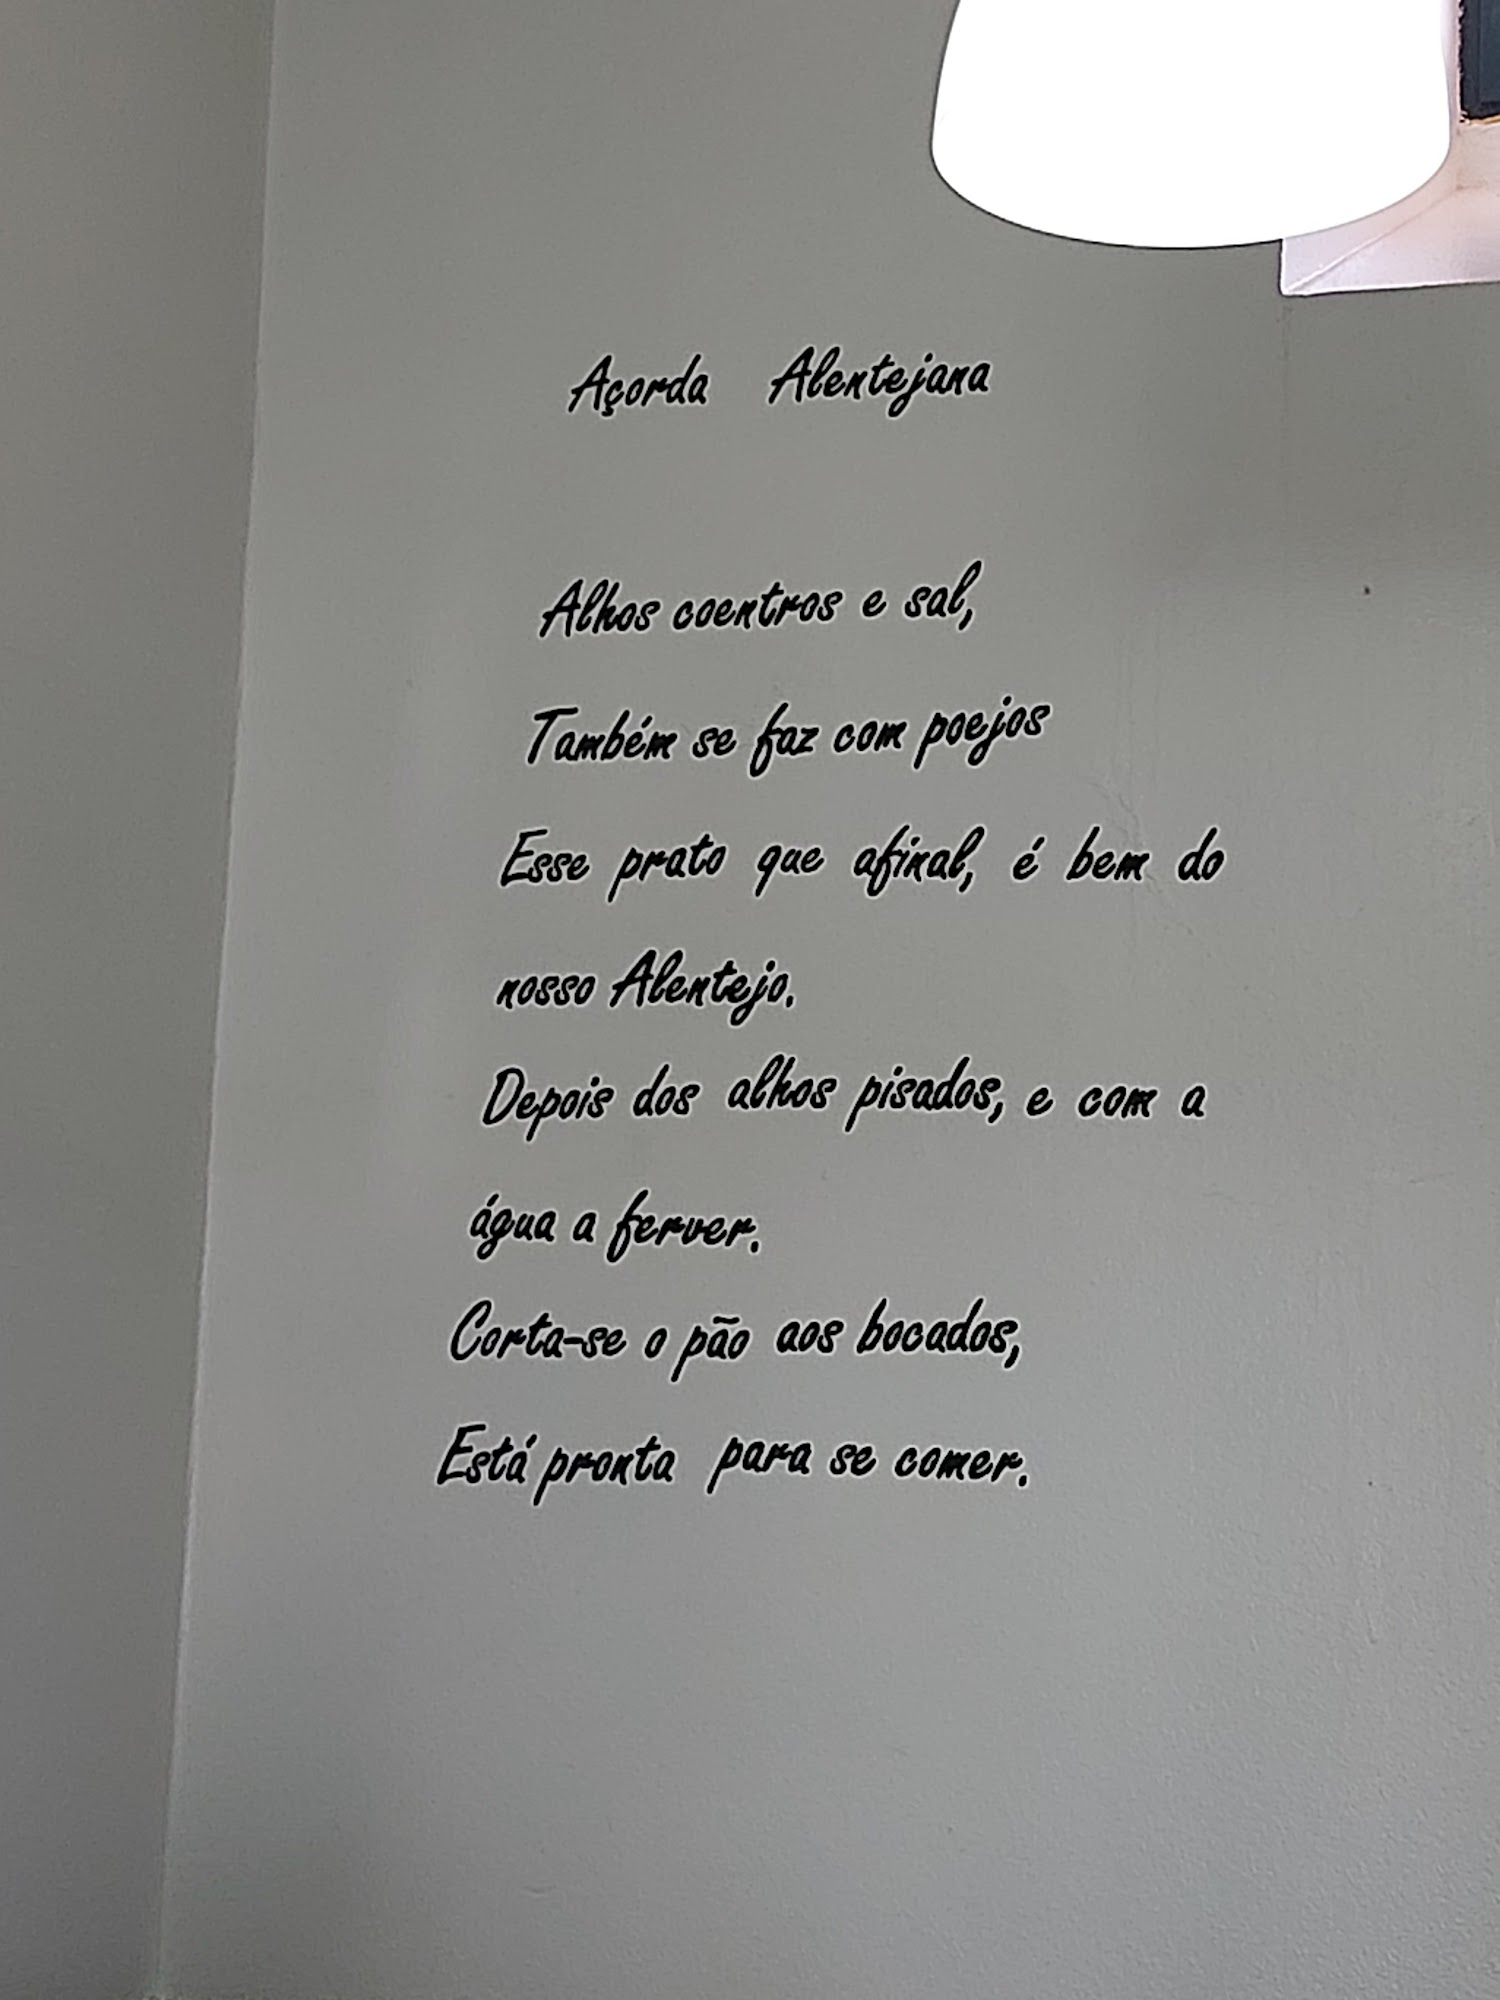 Açorda Alentejana
Alhos coentros e sal,
Também se faz com poejos
Esse prato que afinal, é bem do
nosso Alentejo.
Depois dos alhos pisados, e com a
água a ferver.
Corta-se o pão aos bocados,
Está pronta para se comer.